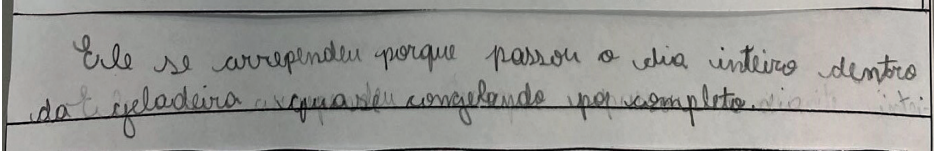 Ele se arrependeu porque passou o dia inteiro dentro
da geladeira quase congelando por completo.